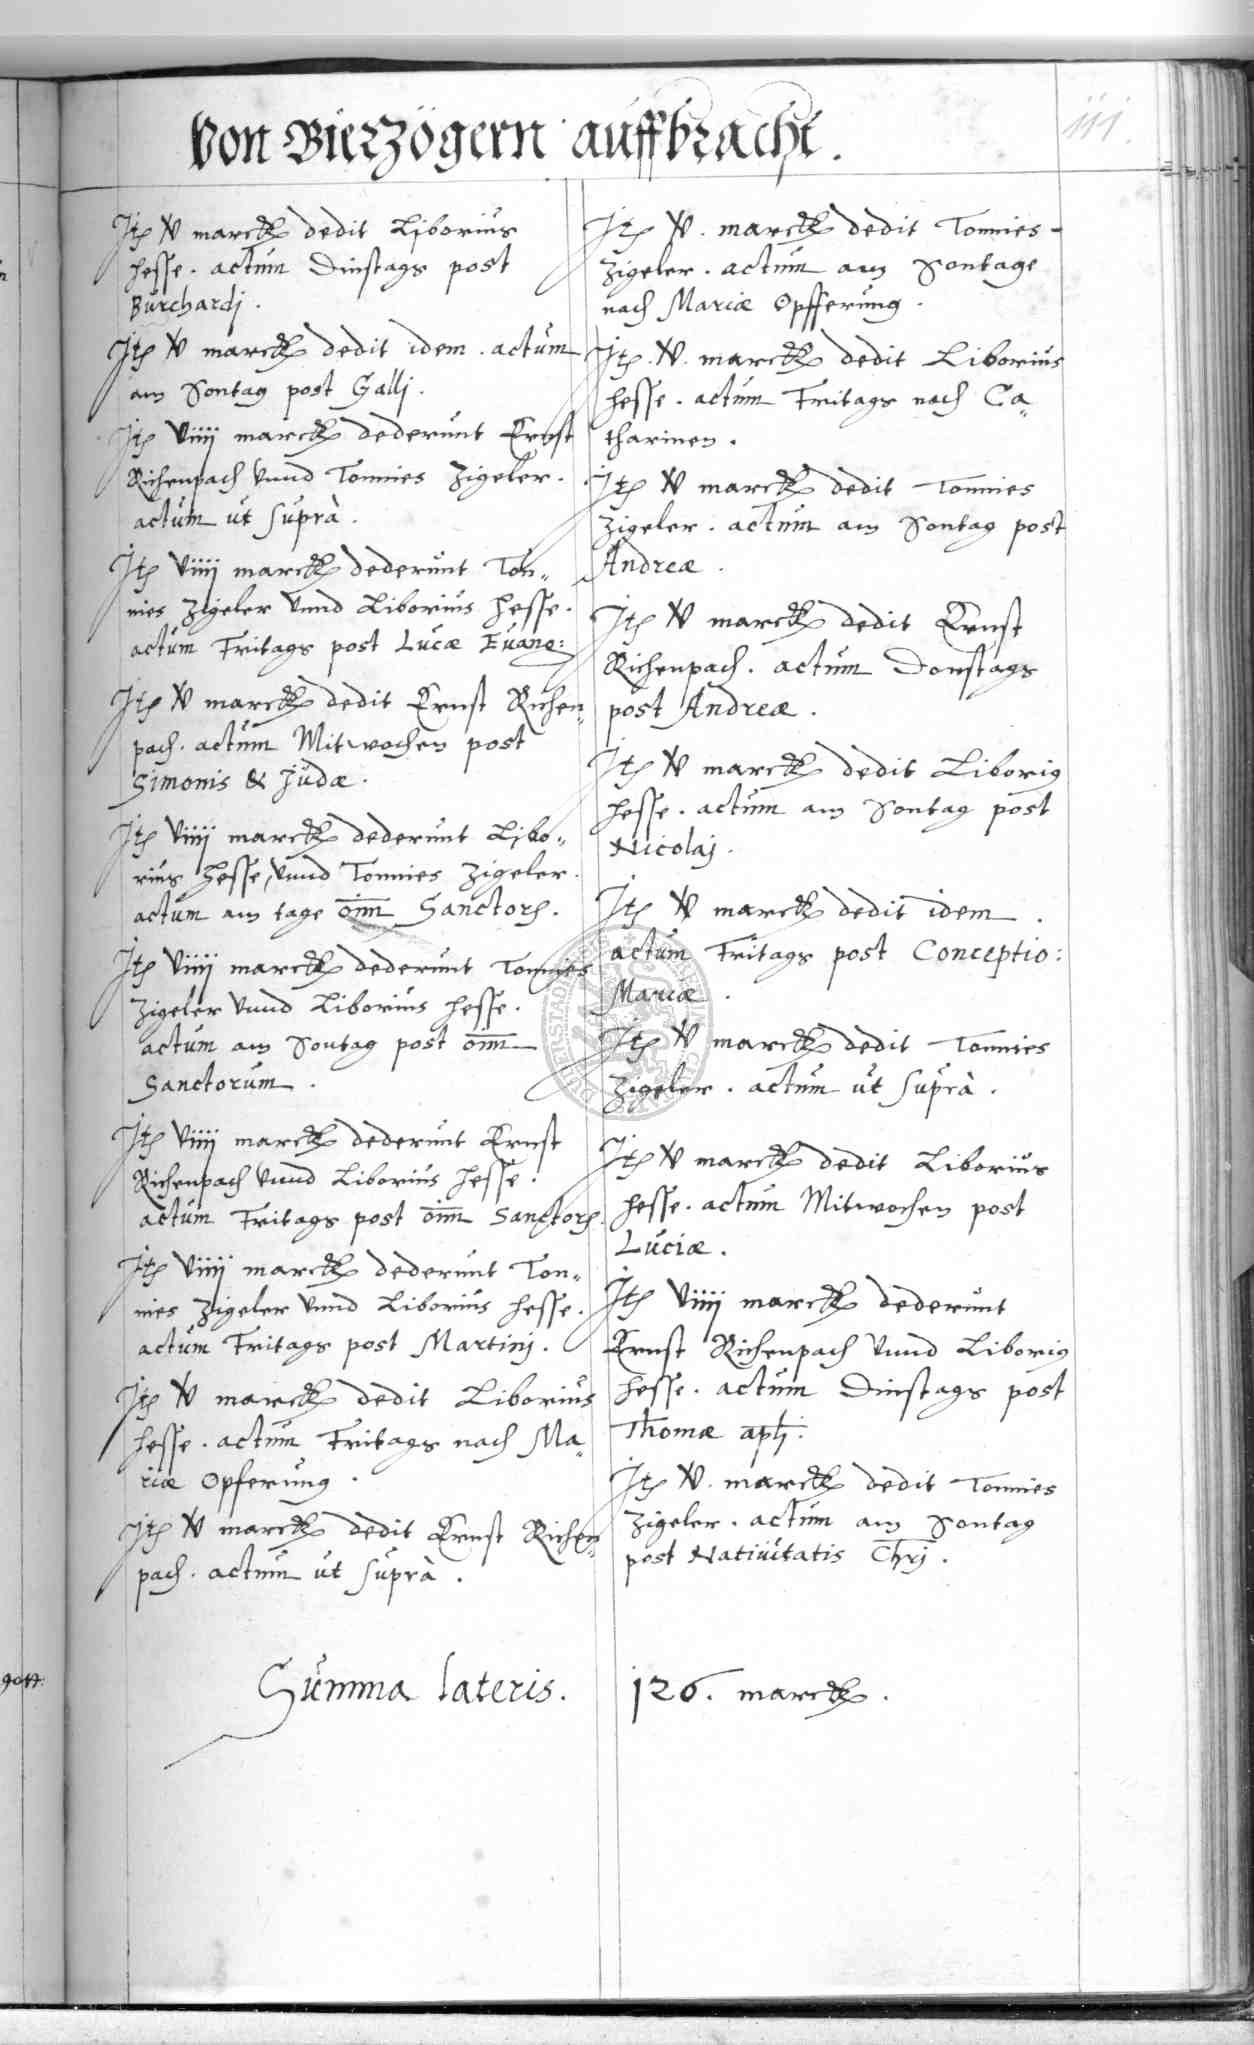 Von Bierzögern auffbracht.
111.
Itē v̸ marckē dedit Liborius
Hesse. actum Dinstags post
Burchardj.
Itē v̸ marckē dedit idem. actum
am Sontag post Gallj.
Itē viiij marckē dederunt Ernst
Richenpach vnnd Tonnies Zigeler.
actum ut suprà.
Itē viiij marckē dederunt Ton„
nies Zigeler vnnd Liborius Hesse.
actum Fritags post Lucæ Euang:
Itē v̸ marckē dedit Ernst Richen„
pach. actum Mitwochen post
Simonis & Judæ.
Itē viiij marckē dederunt Libo„
rius Hesse, vnnd Tonnies Zigeler.
actum am tage oīm Sanctorꝭ.
Itē viiij marckē dederunt Tonnies
Zigeler vnnd Liborius Hesse.
actum am Sontag post oīm
Sanctorum.
Itē viiij marckē dederunt Ernst
Richenpach vnnd Liborius Hesse.
actum Fritags post oīm Sanctorꝭ.
Itē viiij marckē dederunt Ton„
nies Zigeler vnnd Liborius Hesse.
actum Fritags post Martinj.
Itē v̸ marckē dedit Liborius
Hesse. actum Fritags nach Ma„
riæ Opferung.
Itē v̸ marckē dedit Ernst Richen„
pach. actum ut suprà.
Itē v̸. marckē dedit Tonnies
Zigeler. actum am Sontage
nach Mariæ Opfferung.
Itē. v̸. marckē dedit Liborius
Hesse. actum Fritags nach Ca„
tharinen.
Itē v̸ marckē dedit Tonnies
Zigeler. actum am Sontag post
Andreæ.
Itē v̸ marckē dedit Ernst
Richenpach. actum Donstags
post Andreæ.
Itē v̸ marckē dedit Liboriꝰ
Hesse. actum am Sontag post
Nicolaj.
Itē v̸ marckē dedit idem.
actum Fritags post Conceptio:
Mariæ.
Itē v̸ marckē dedit Tonnies
Zigeler. actum ut suprà.
Itē v̸ marckē dedit Liborius
Hesse. actum Mitwochen post
Luciæ.
Itē viiij marckē dederunt
Ernst Richenpach vnnd Liboriꝰ
Hesse. actum Dinstags post
Thomæ apłj:
Itē v̸. marckē dedit Tonnies
Zigeler. actum am Sontag
post Natiuitatis Chr̄j.
Summa lateris. 126. marckē.